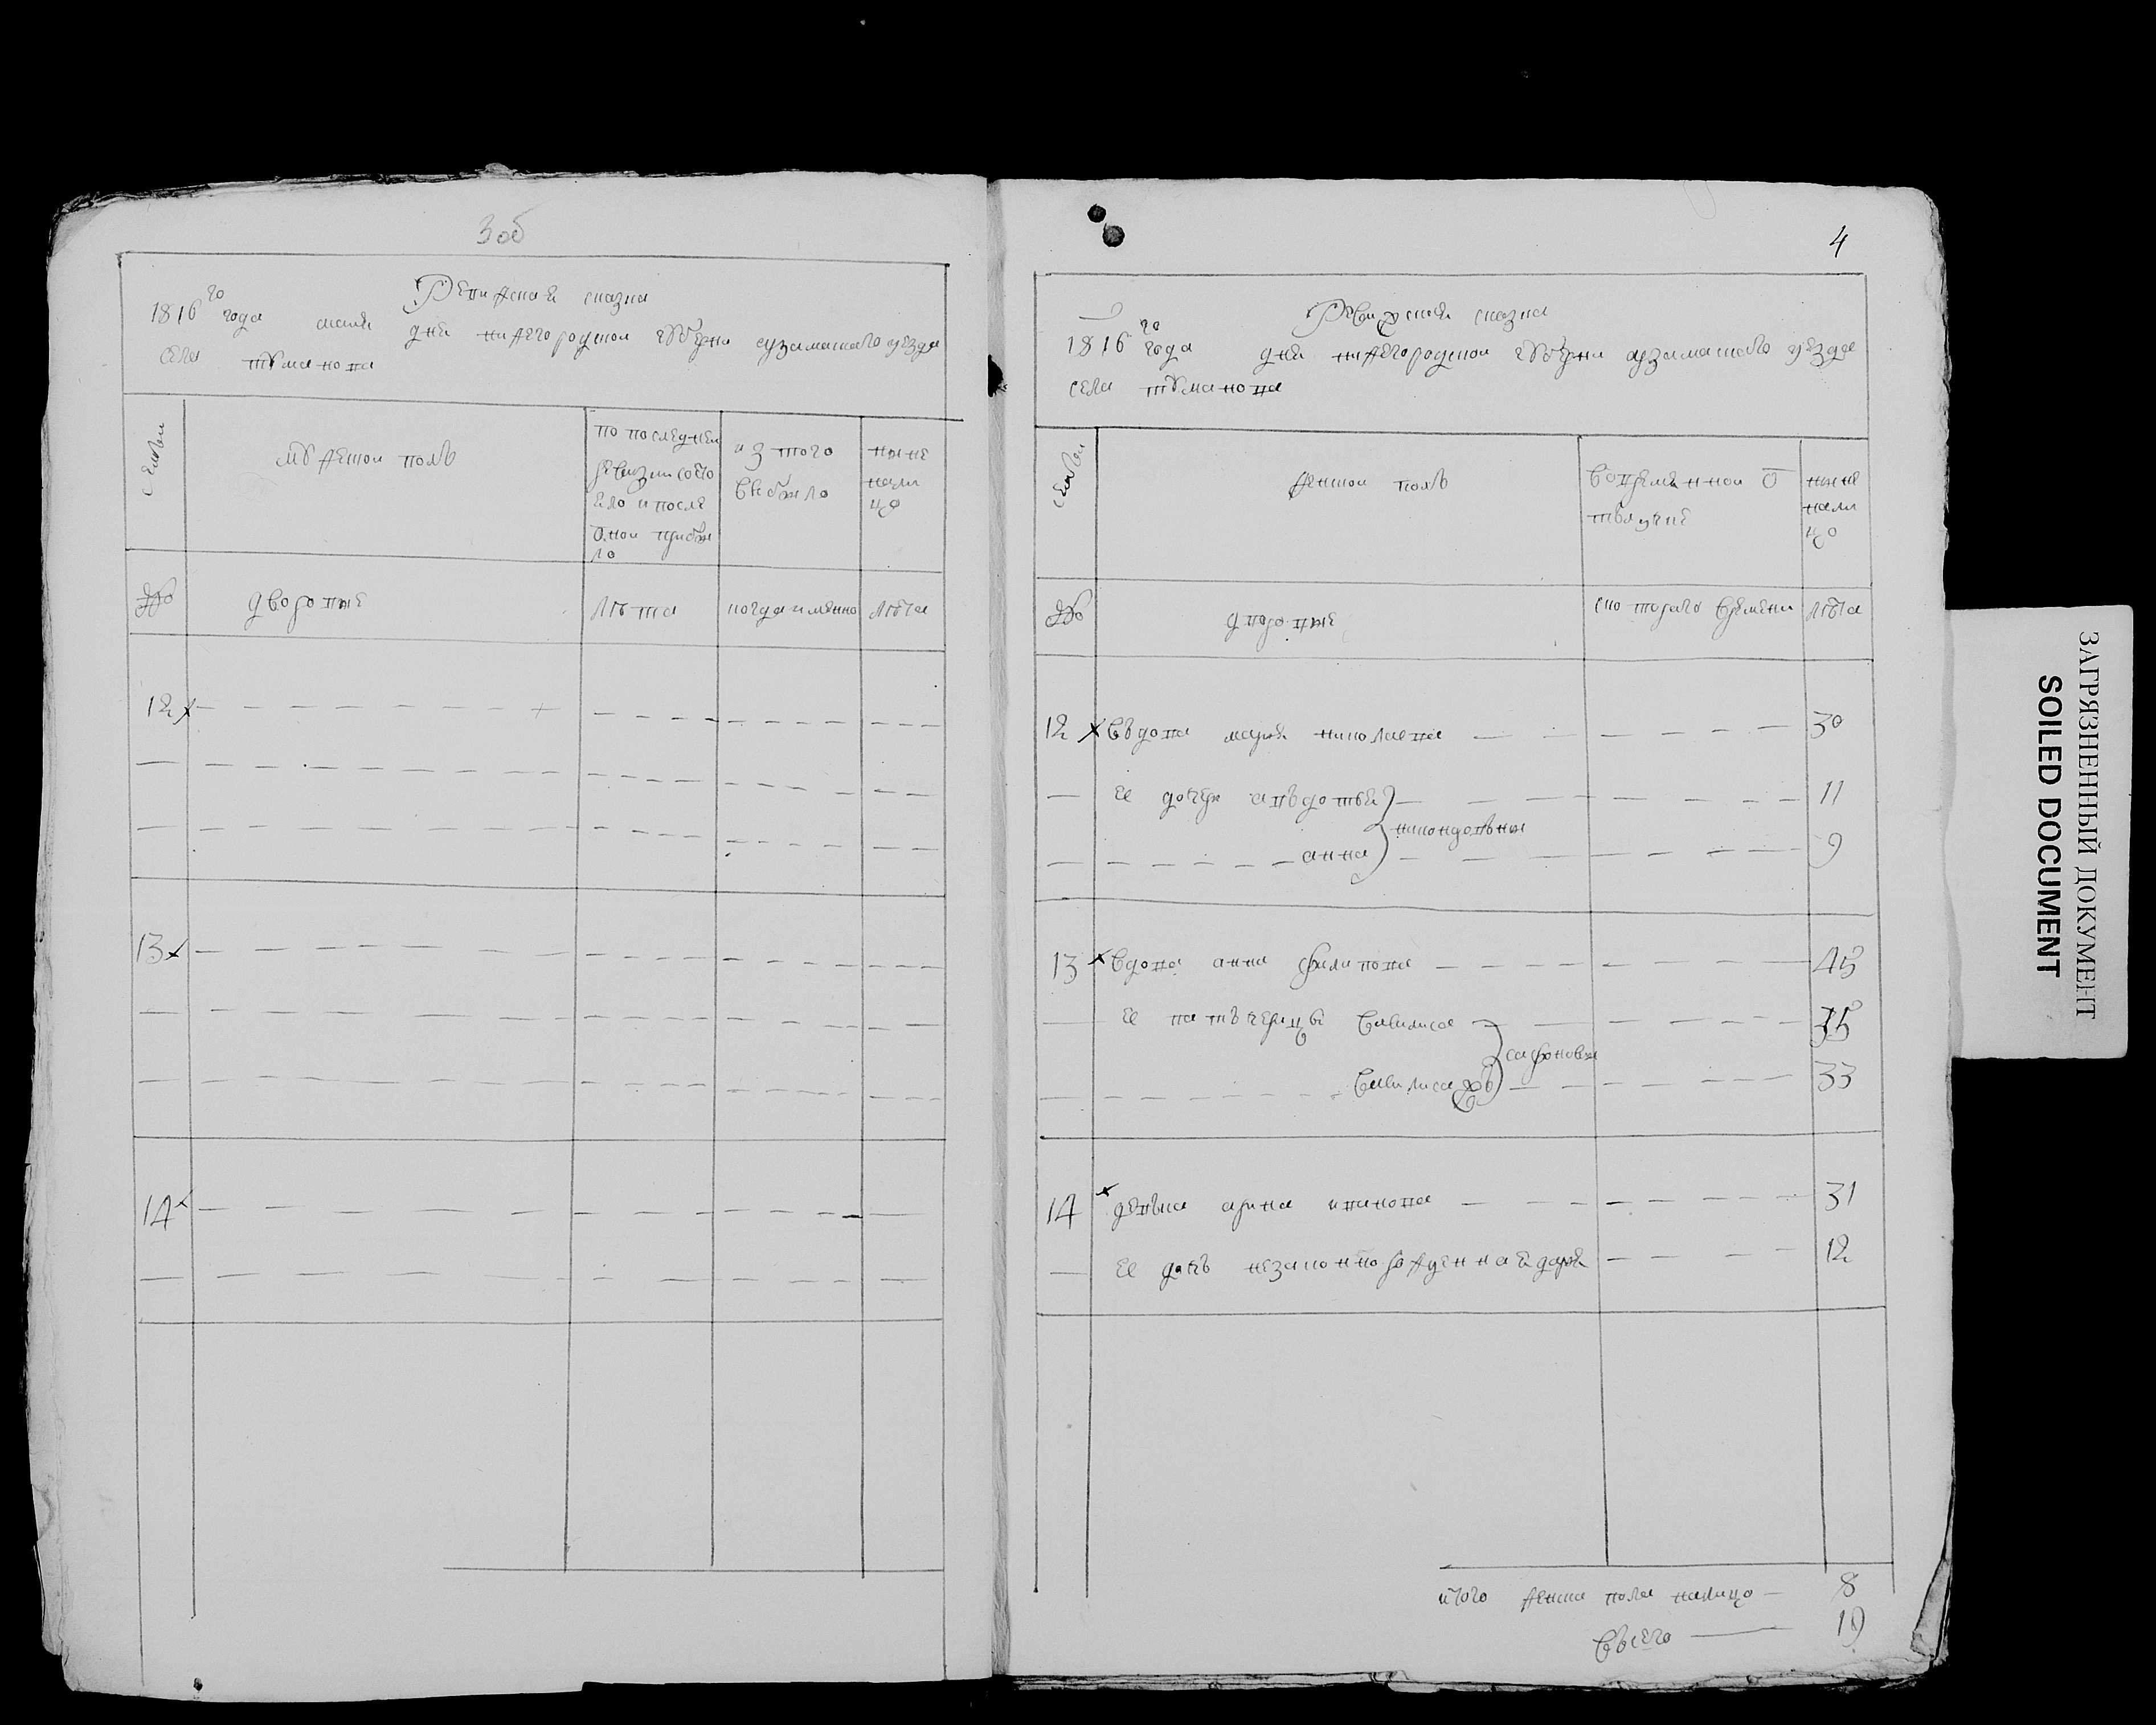 3об
Ревижская сказка
1816го года маия дня нижегородской губерни арзамаского уезда
села туманова
семьи
мужеской полъ
по последней
ревизии состо
яло и после
оной прибы
ло
из того
выбыло
ныне
нали
цо
№
дворовые
лѣта
когда имянно
лѣта
12
13
14
4
Ревижская сказка
1816го года дня нижегородской губерни арзамаского уезда
села туманова
семьи
женской полъ
во временной о
тлучке
ныне
нали
цо
№
дворовые
с которого времени
лѣта
12 въдова марья николаева 30
ее дочери авъдотья 11
никоноровны
анна 9
13 вдова анна филипова 45
ее патъчерицы василиса 35
сафоновы
33
14 девъка арина иванова 31
ее дочь незаконнорожденная дарья 12
итого женска пола налицо 8
въсего 19
ЗАГРЯЗНЕННЫЙ ДОКУМЕНТ
SOILED DOCUMENT